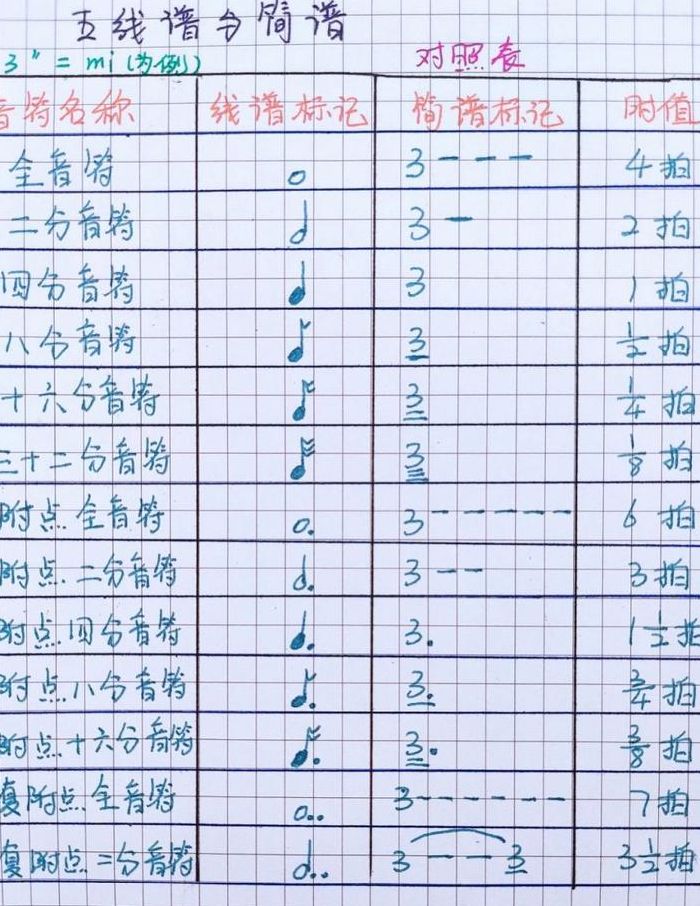 五线谱与简谱
3" = mi (为例)
对照表
音符名称 线谱标记 简谱标记 时值
全音符 3 - - - 4拍
二分音符 3 - 2拍
四分音符 3 1拍
八分音符 3 1/2拍
十六分音符 3 1/4拍
三十二分音符 3 1/8拍
附点全音符 3 - - - - - 6拍
附点二分音符 3 - - 3拍
附点四分音符 3. 1 1/2拍
附点八分音符 3. 3/4拍
附点十六分音符 3. 3/8拍
复附点全音符 3 - - - - - - 7拍
复附点二分音符 3 - - 3 3 1/2拍